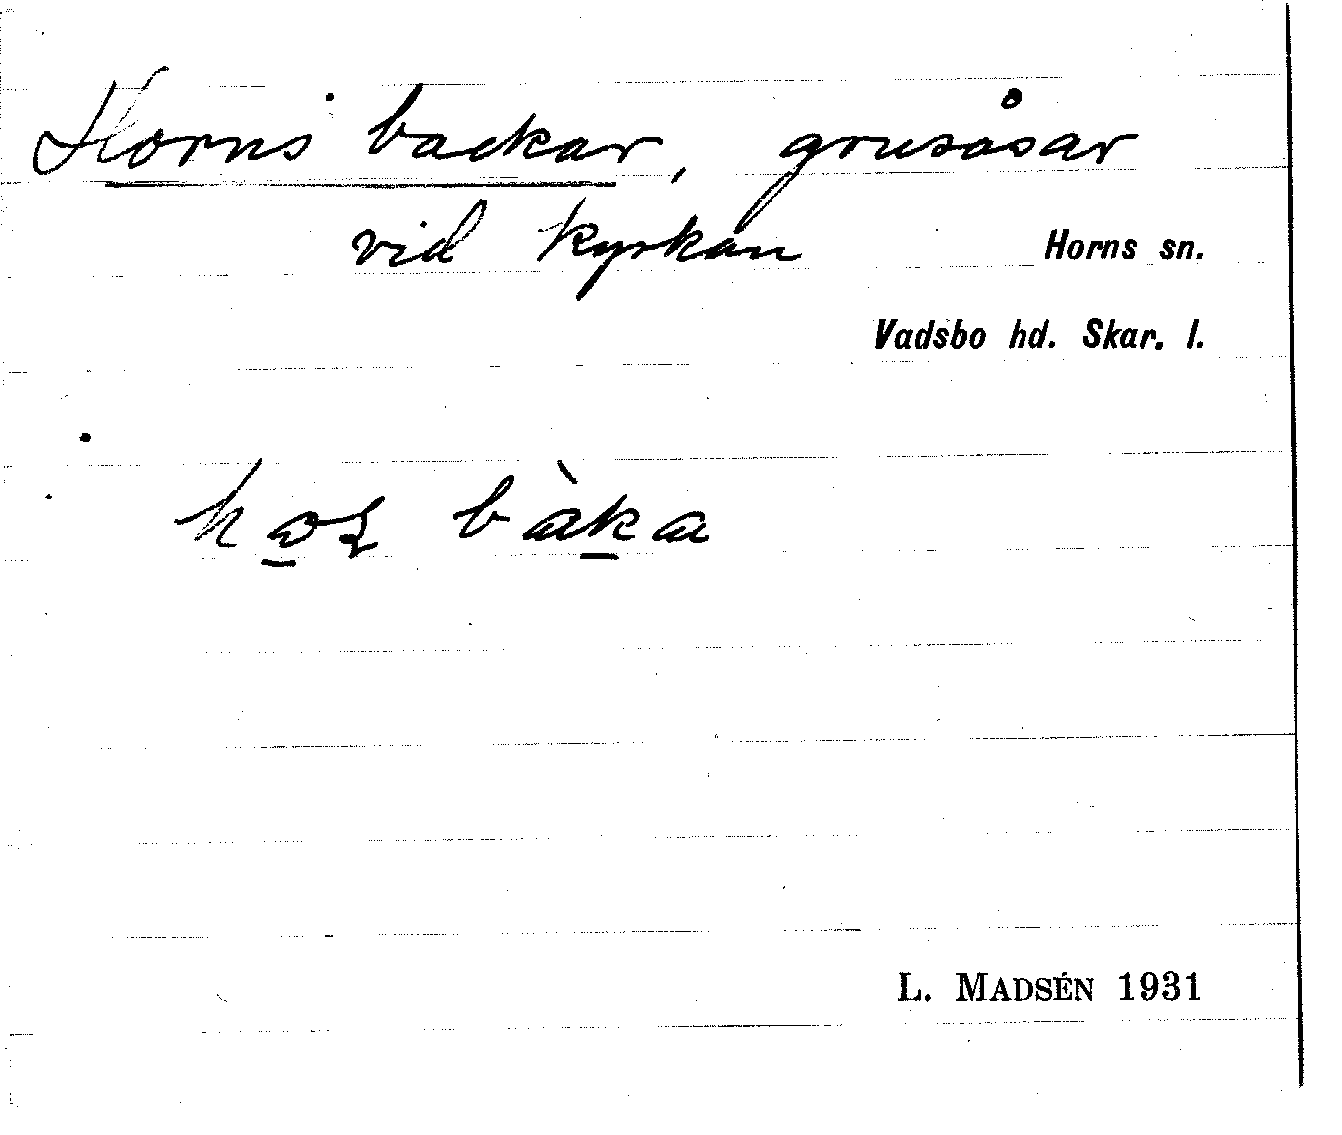 Horns backar, grusåsar
vid kyrkan
Horns sn.
Vadsbo hd. Skar. l.
bàka
L. MADSÉN 1931